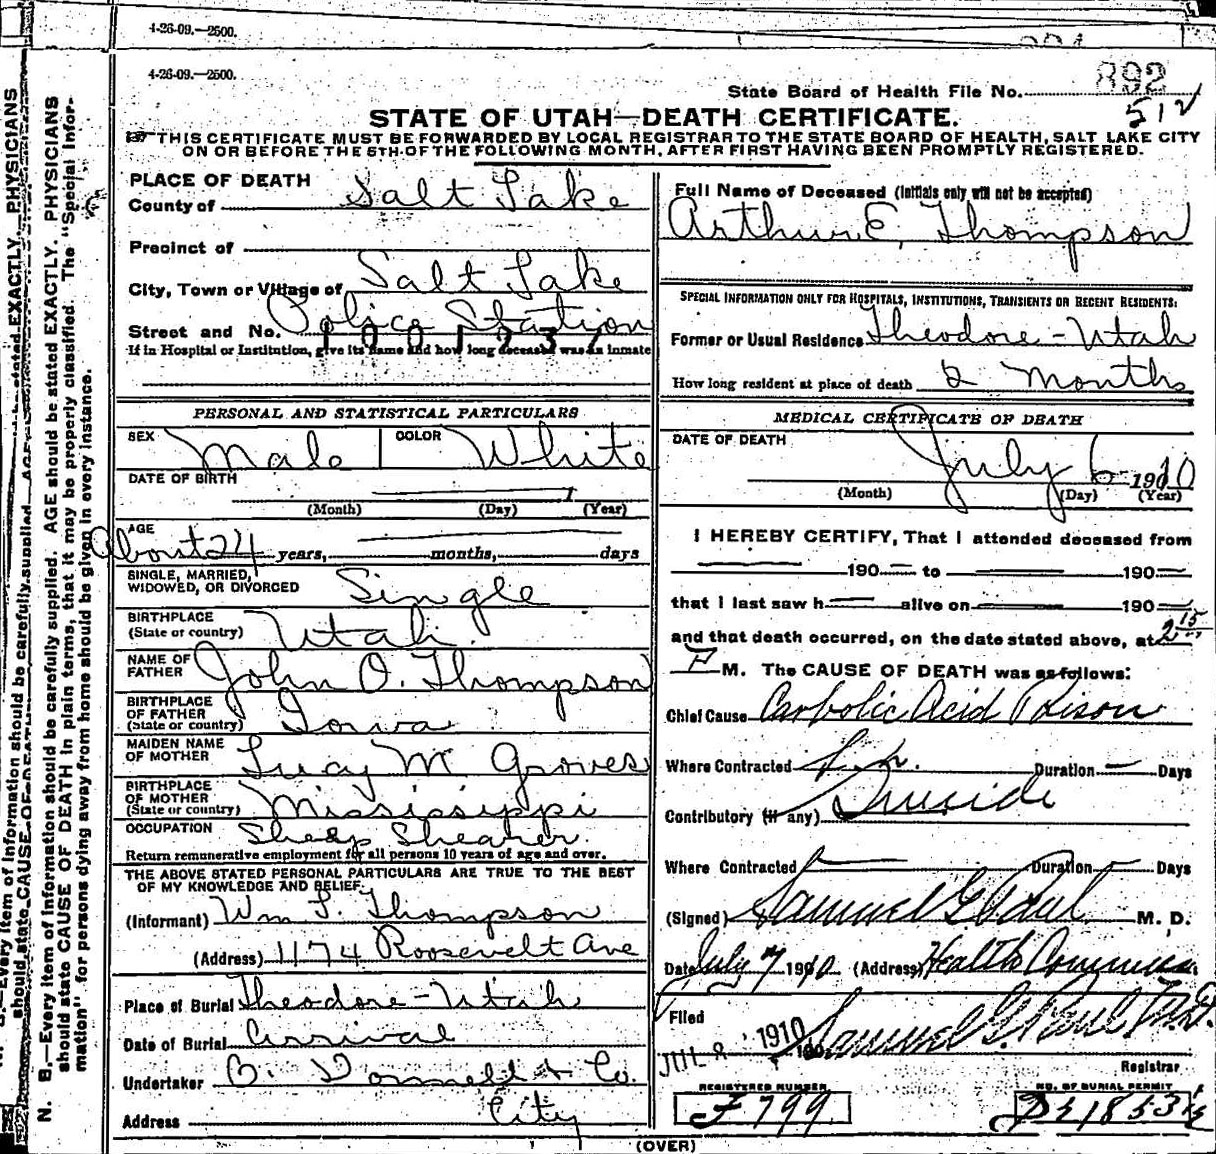 4-26-09.—2500.
4-26-09.—2500.
State Board of Health File No. 892
512
STATE OF UTAH—DEATH CERTIFICATE.
THIS CERTIFICATE MUST BE FORWARDED BY LOCAL REGISTRAR TO THE STATE BOARD OF HEALTH, SALT LAKE CITY
ON OR BEFORE THE 5TH OF THE FOLLOWING MONTH, AFTER FIRST HAVING BEEN PROMPTLY REGISTERED.
PLACE OF DEATH
County of Salt Lake
Precinct of
City, Town or Village of Salt Lake
Street and No. Police Station
1001232
If in Hospital or Institution, give its name and how long deceased was an inmate
PERSONAL AND STATISTICAL PARTICULARS
SEX Male COLOR White
DATE OF BIRTH 1
(Month) (Day) (Year)
AGE
About 24 years, months, days
SINGLE, MARRIED,
WIDOWED, OR DIVORCED Single
BIRTHPLACE
(State or country) Utah
NAME OF
FATHER John O. Thompson
BIRTHPLACE
OF FATHER
(State or country) Iowa
MAIDEN NAME
OF MOTHER Lucy M Groves
BIRTHPLACE
OF MOTHER
(State or country) Mississippi
OCCUPATION Sheep Shearer
Return remunerative employment for all persons 10 years of age and over.
THE ABOVE STATED PERSONAL PARTICULARS ARE TRUE TO THE BEST
OF MY KNOWLEDGE AND BELIEF.
(Informant) Wm L. Thompson
(Address) 1174 Roosevelt Ave
Place of Burial Theodore-Utah
Date of Burial Arrival
Undertaker O. Donnell & Co.
Address City
Full Name of Deceased (Initials only will not be accepted)
Arthur E. Thompson
SPECIAL INFORMATION ONLY FOR HOSPITALS, INSTITUTIONS, TRANSIENTS OR RECENT RESIDENTS:
Former or Usual Residence Theodore-Utah
How long resident at place of death 2 Months
MEDICAL CERTIFICATE OF DEATH
DATE OF DEATH
July 6 1910
(Month) (Day) (Year)
I HEREBY CERTIFY, That I attended deceased from
190 to 190
that I last saw h alive on 190
and that death occurred, on the date stated above, at 2 15
P M. The CAUSE OF DEATH was as follows:
Chief Cause Carbolic Acid Poison
Where Contracted Duration Days
Contributory (if any) Suicide
Where Contracted Duration Days
(Signed) Samuel G. Paul M. D.
Date July 7 1910 (Address) Health Commiss.
Filed
JUL 8 1910 190 Samuel G. Paul M.D.
Registrar
REGISTERED NUMBER
F 799
NO. OF BURIAL PERMIT
(OVER)
N. B.—Every item of information should be carefully supplied. AGE should be stated EXACTLY. PHYSICIANS
should state CAUSE OF DEATH in plain terms, that it may be properly classified. The "Special Infor-
mation" for persons dying away from home should be given in every instance.
Every item of information should be carefully supplied. AGE stated EXACTLY. PHYSICIANS
should state CAUSE OF DEATH